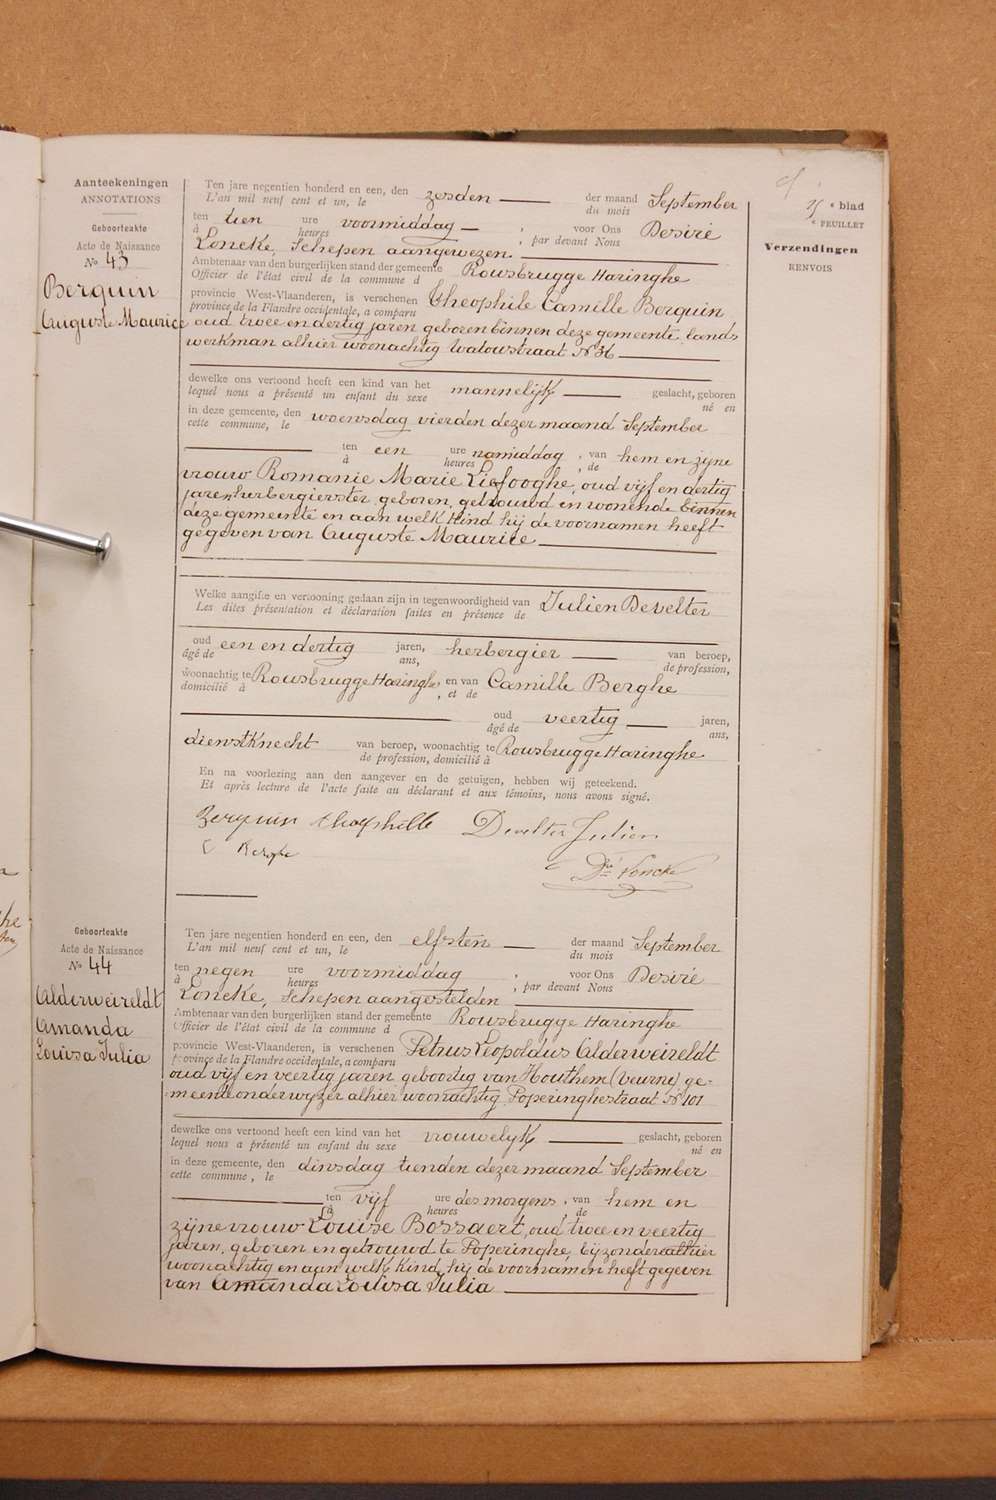 15 e blad
e FEUILLET
Verzendingen
RENVOIS
Aanteekeningen
ANNOTATIONS
Geboorteakte
Acte de Naissance
No 43
Berquin
Auguste Maurice
Ten jare negentien honderd en een, den zesden der maand September
L'an mil neuf cent et un, le du mois
ten tien ure voormiddag , voor Ons Desiré
à heures , par devant Nous
Loncke, Schepen aangewezen.
Ambtenaar van den burgerlijken stand der gemeente Rousbrugge Haringhe
Officier de l'état civil de la commune d
provincie West-Vlaanderen, is verschenen Theophile Camille Berquin,
province de la Flandre occidentale, a comparu
oud twee en dertig jaren geboren binnen deze gemeente, lands
werkman alhier woonachtig watoustraat No 36
dewelke ons vertoond heeft een kind van het mannelijk geslacht, geboren
lequel nous a présenté un enfant du sexe né en
in deze gemeente, den woensdag vierden dezer maand September
cette commune, le
ten een ure namiddag , van hem en zijne
à heures , de
vrouw Romanie Marie Liefooghe, oud vijf en dertig
jaren, herbergierster, geboren, getrouwd en wonende binnen
deze gemeente en aan welk kind hij de voornamen heeft
gegeven van Auguste Maurice
Welke aangifte en vertooning gedaan zijn in tegenwoordigheid van Julien Develter
Les dites présentation et déclaration faites en présence de
oud een en dertig jaren, herbergier van beroep,
âgé de ans, de profession,
woonachtig te Rousbrugge Haringhe en van Camille Berghe
domicilié à , et de
oud veertig jaren,
âgé de ans,
dienstknecht van beroep, woonachtig te Rousbrugge Haringhe
de profession, domicilié à
En na voorlezing aan den aangever en de getuigen, hebben wij geteekend.
Et après lecture de l'acte faite au déclarant et aux témoins, nous avons signé.
Berquin theophille Develter Julien
C Berghe
Dré Loncke
Geboorteakte
Acte de Naissance
No 44
Alderweireldt
Amanda
Louisa Julia
Ten jare negentien honderd en een, den elfsten der maand September
L'an mil neuf cent et un, le du mois
ten negen ure voormiddag , voor Ons Desiré
à heures , par devant Nous
Loncke, Schepen aangestelden
Ambtenaar van den burgerlijken stand der gemeente Rousbrugge Haringhe
Officier de l'état civil de la commune d
provincie West-Vlaanderen, is verschenen Petrus Leopoldus Alderweireldt
province de la Flandre occidentale, a comparu
oud vijf en veertig jaren geboortig van Houthem (veurne) ge-
meenteonderwijzer alhier woonachtig Poperinghestraat No 101
dewelke ons vertoond heeft een kind van het vrouwelijk geslacht, geboren
lequel nous a présenté un enfant du sexe né en
in deze gemeente, den dinsdag tienden dezer maand September
cette commune, le
ten vijf ure des morgens , van hem en
à heures , de
zijne vrouw Louise Bossaert, oud twee en veertig
jaren, geboren en getrouwd te Poperinghe, bijzondere alhier
woonachtig en aan welk kind hij de voornamen heeft gegeven
van Amanda Louisa Julia